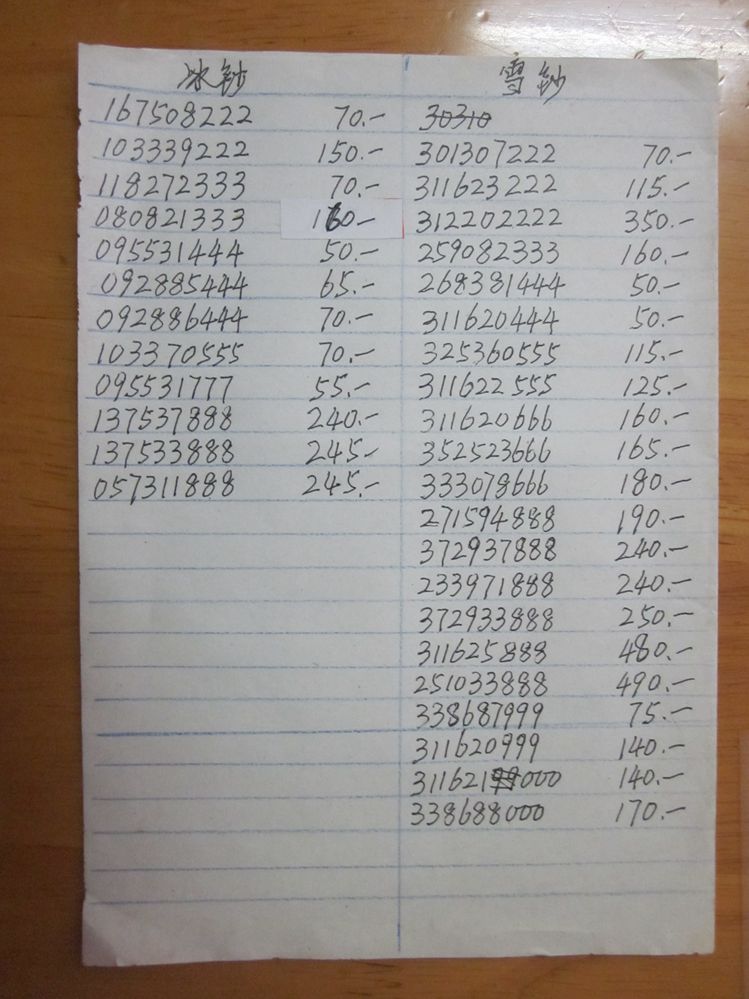 冰钞
167508222 70.-
103339222 150.-
118272333 70.-
080821333 160.-
095531444 50.-
092885444 65.-
092886444 70.-
103370555 70.-
095531777 55.-
137537888 240.-
137533888 245.-
057311888 245.-
雪钞
30310
301307222 70.-
311623222 115.-
312202222 350.-
259082333 160.-
268381444 50.-
311620444 50.-
325360555 115.-
311622555 125.-
311620666 160.-
352523666 165.-
333078666 180.-
271594888 190.-
372937888 240.-
233971888 240.-
372933888 250.-
311625888 480.-
251033888 490.-
338687999 75.-
311620999 140.-
311621000 140.-
338688000 170.-